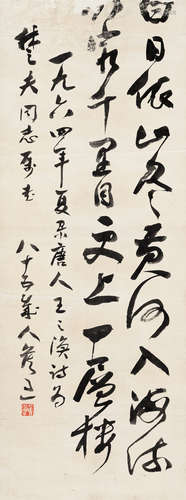 白日依山尽黄河入海流
欲穷千里目更上一层楼
一九六四年夏录唐人王之涣诗为
楚夫同志属书 八十五岁人詹